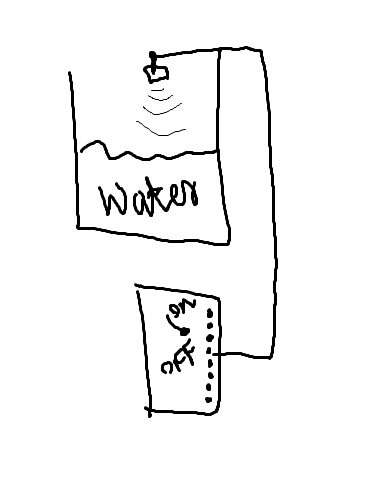 Water
ON
OFF